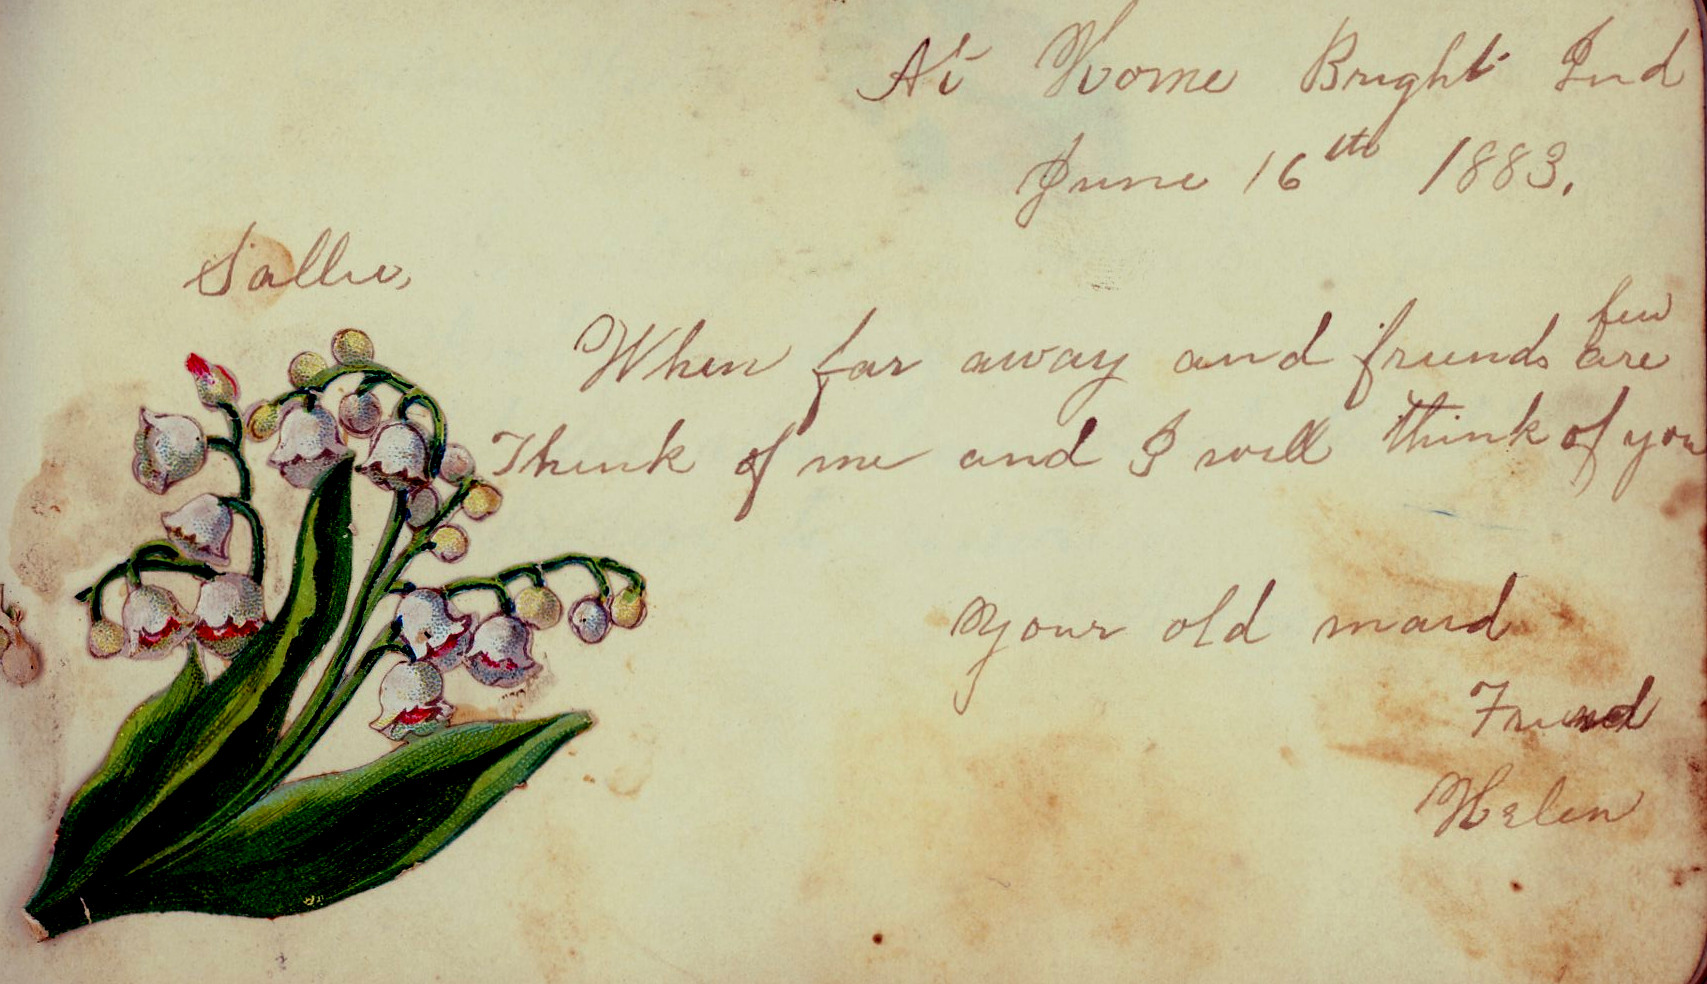 At Home Bright Ind
June 16th 1883.
Sallie,
When far away and friends are few
Think of me and I will think of you
Your old maid
Friend
Helen